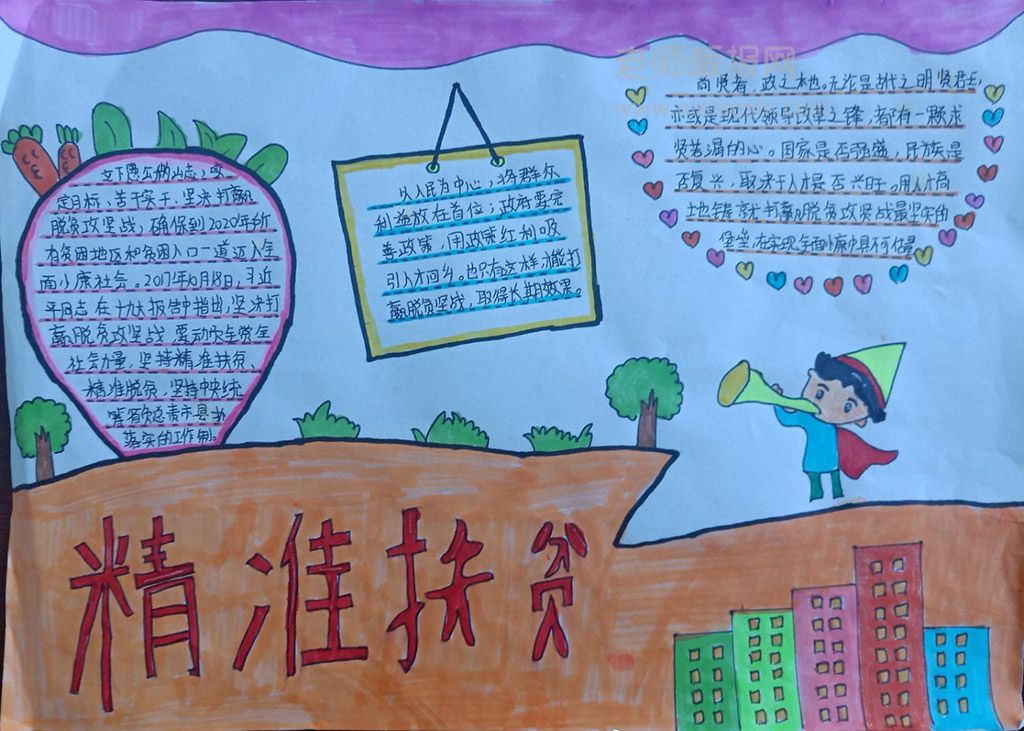 老师板报网
立下愚公移山志，咬
定目标、苦干实干，坚决打赢
脱贫攻坚战，确保到2020年所
有贫困地区和贫困人口一道迈入全
面小康社会。2017年10月18日，习近
平同志在十九大报告中指出，坚决打
赢脱贫攻坚战 要动员全党全
社会力量，坚持精准扶贫、
精准脱贫，坚持中央统
筹省负总责市县抓
落实的工作制。
以人民为中心，将群众
利益放在首位；政府要完
善政策，用政策红利吸
引人才回乡。也只有这样，才能打
赢脱贫坚战，取得长期效果。
尚贤者，政之本也。无论是古代之明贤君王，
亦或是现代领导改革之锋，都有一颗求
贤若渴的心。国家是否强盛，民族是
否复兴，取决于人才是否兴旺。用人才高
地铸就打赢脱贫攻坚战最坚实的
堡垒，在实现全面小康中具不可估量
精准扶贫